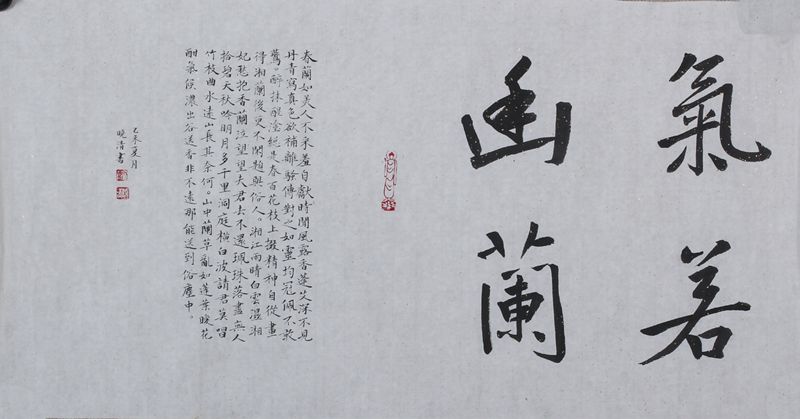 氣若
幽蘭
春蘭如美人不采羞自獻時聞風露香蓬艾深不見
丹青寫真色欲補離騷傳對之如靈均冠佩不敢
鷰。醉抹醒塗總是春百花枝上掇精神自從畫
得湘蘭後更不閑題與俗人。湘江雨時白雲濕湘
妃愁抱香蘭泣望望夫君去不還珮珠落盡無人
拾碧天秋吟明月多千里洞庭橫白波請君莫唱
竹枝曲水遠山長其奈何。山中蘭草亂如蓬葉暖花
酣氣候濃出谷送香非不遠那能送到俗塵中。
乙未夏月
曉清書